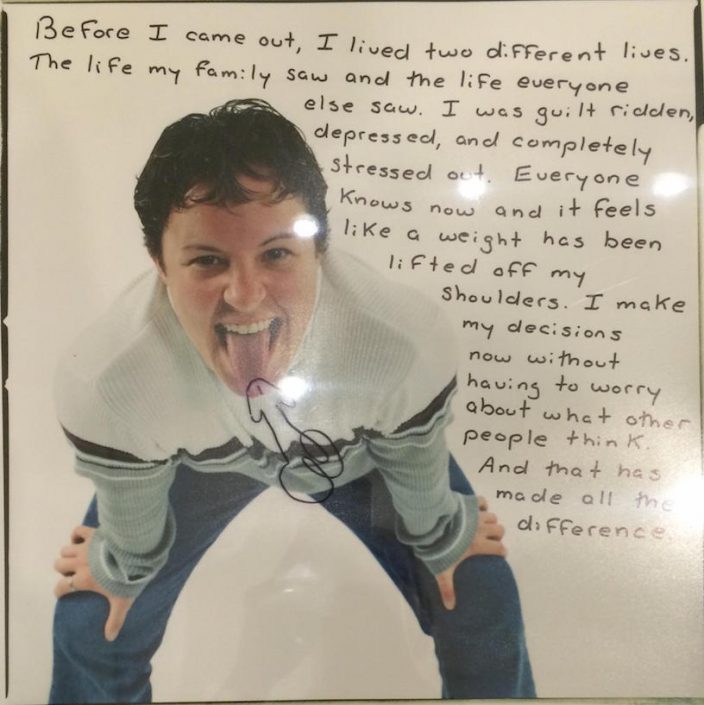 Before I came out, I lived two different lives.
The life my family saw and the life everyone
else saw. I was guilt ridden,
depressed, and completely
stressed out. Everyone
knows now and it feels
like a weight has been
lifted off my
shoulders. I make
my decisions
now without
having to worry
about what other
people think.
And that has
made all the
difference.